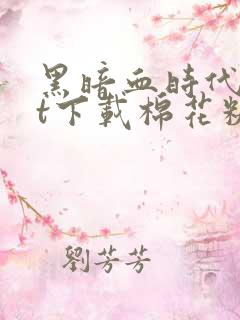 黑暗血時代
t下載棉花糖
劉芳芳